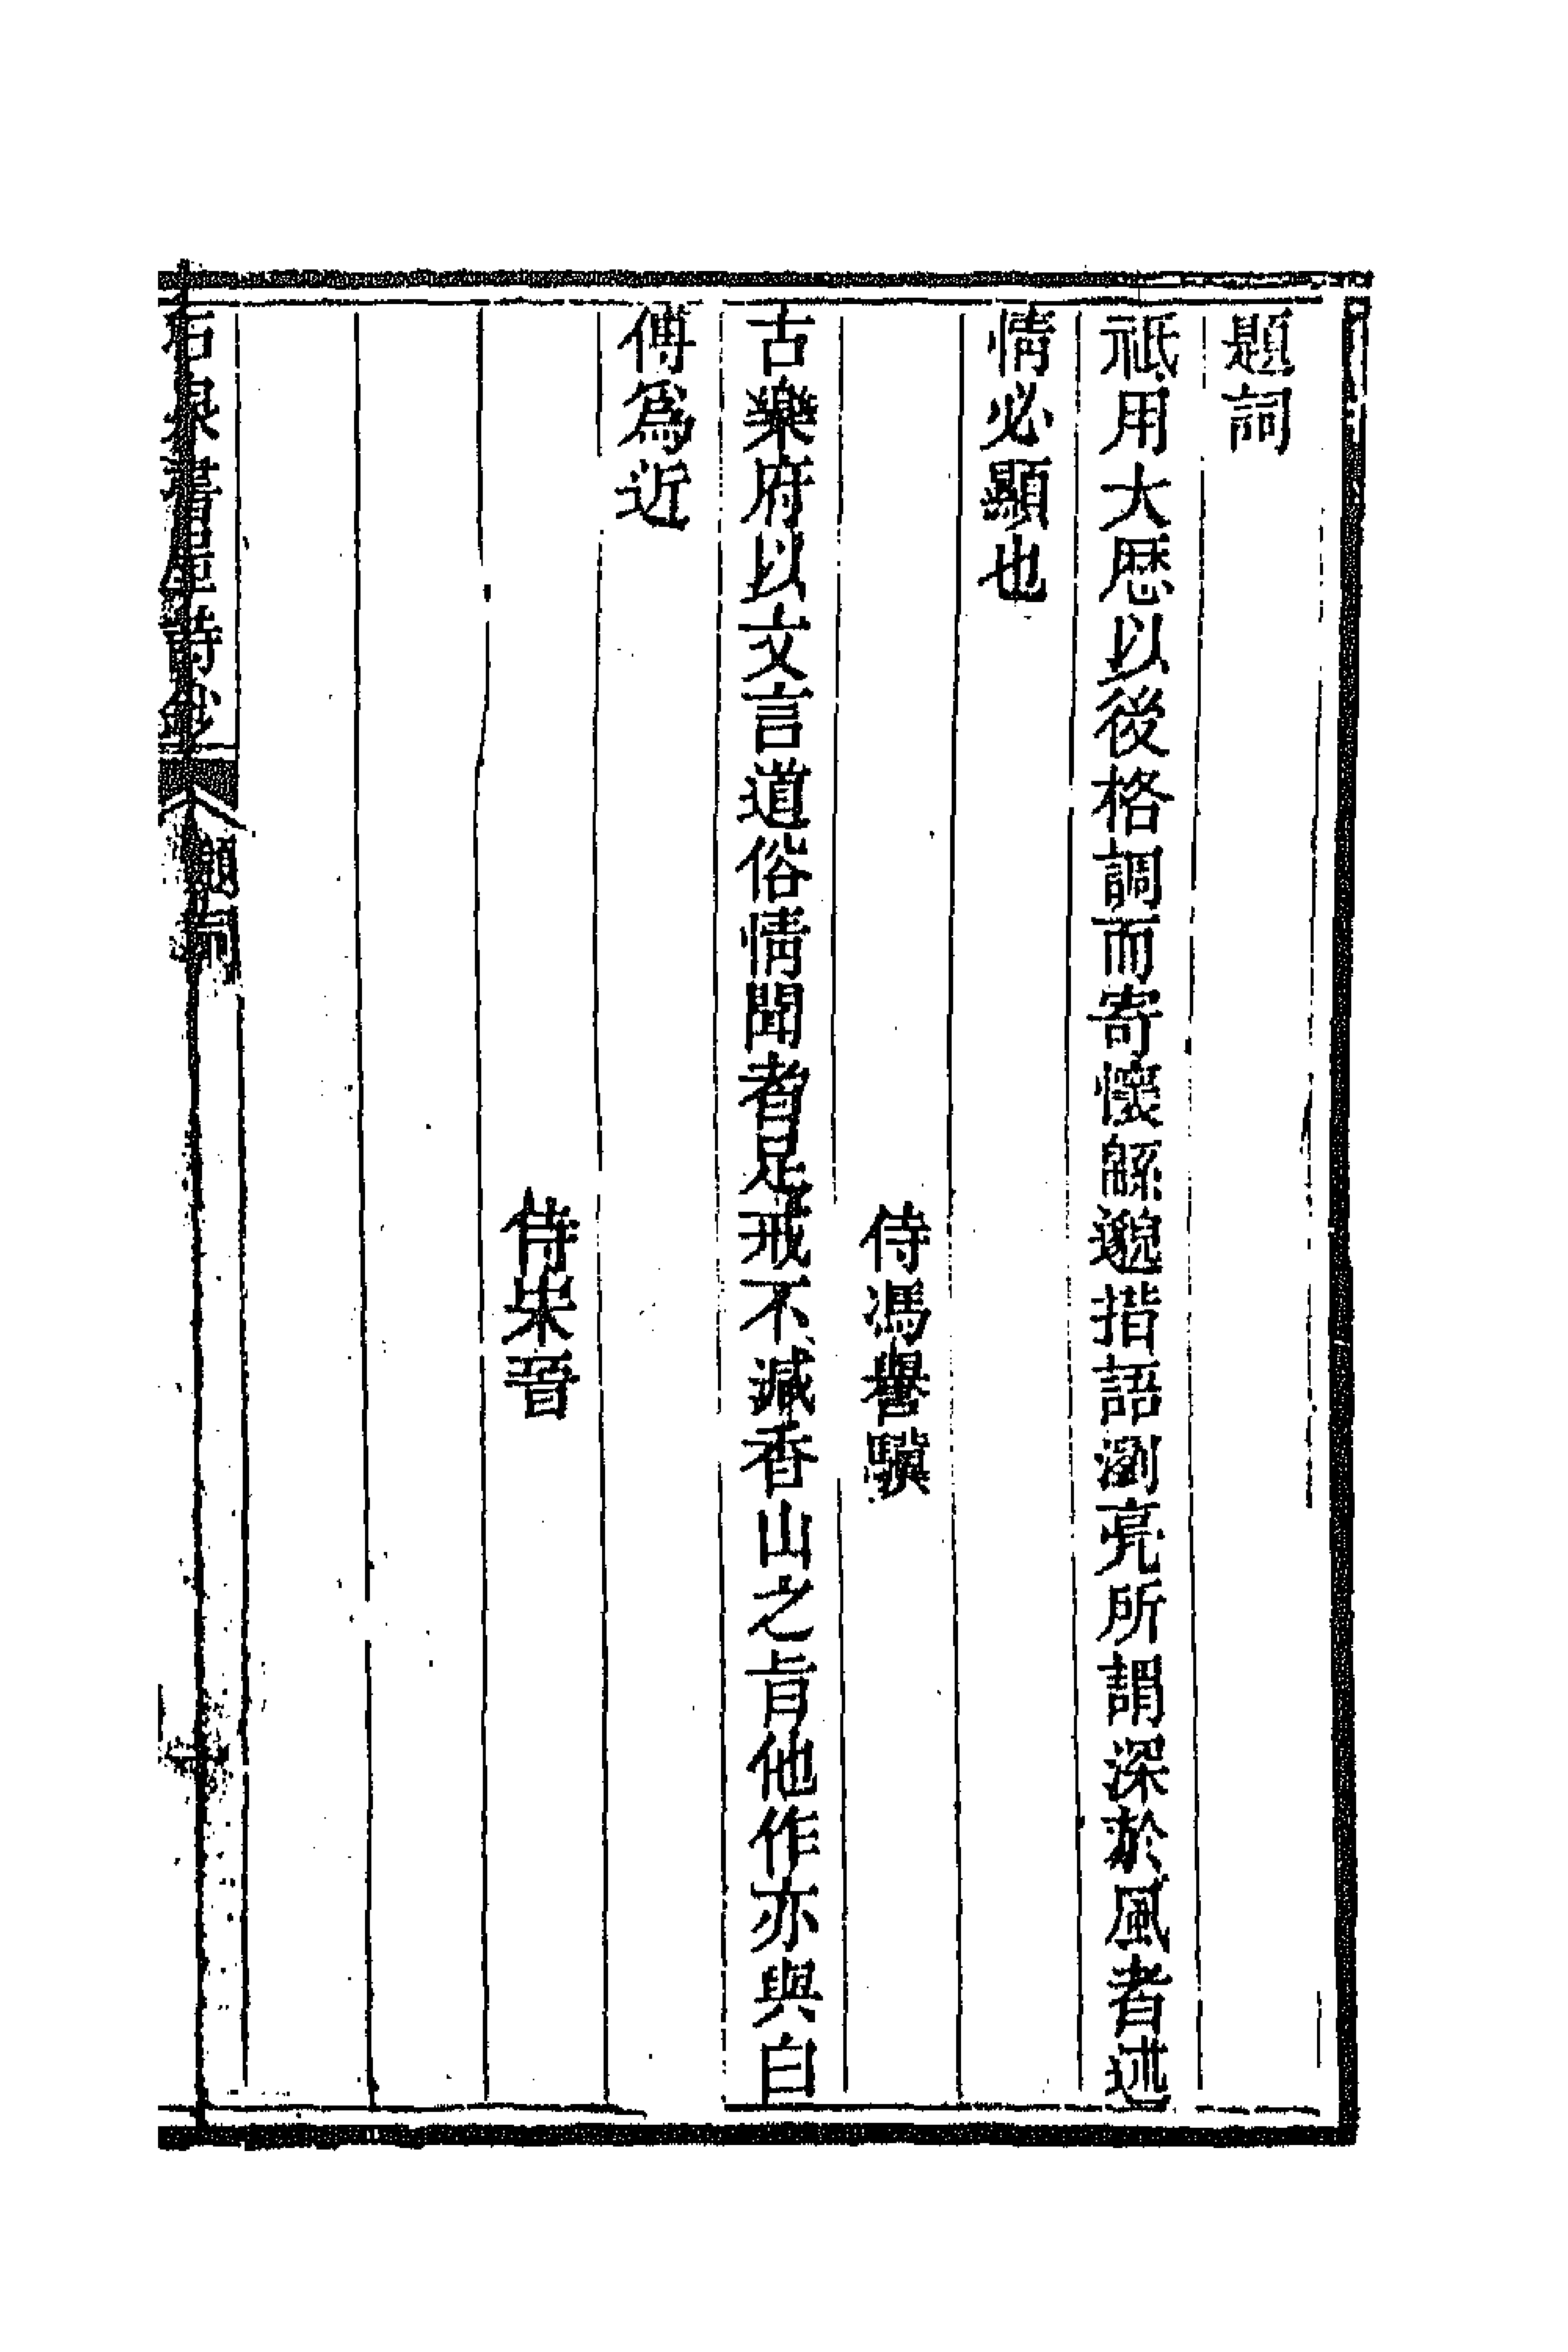 題詞
祇用大厯以後格調而寄懷緜邈措語瀏亮所謂深於風者述
情必顯也
侍馮譽驥
古樂府以文言道俗情聞者足戒不減香山之旨他作亦與白
傅爲近
侍宋晋
石泉書屋詩鈔
題詞